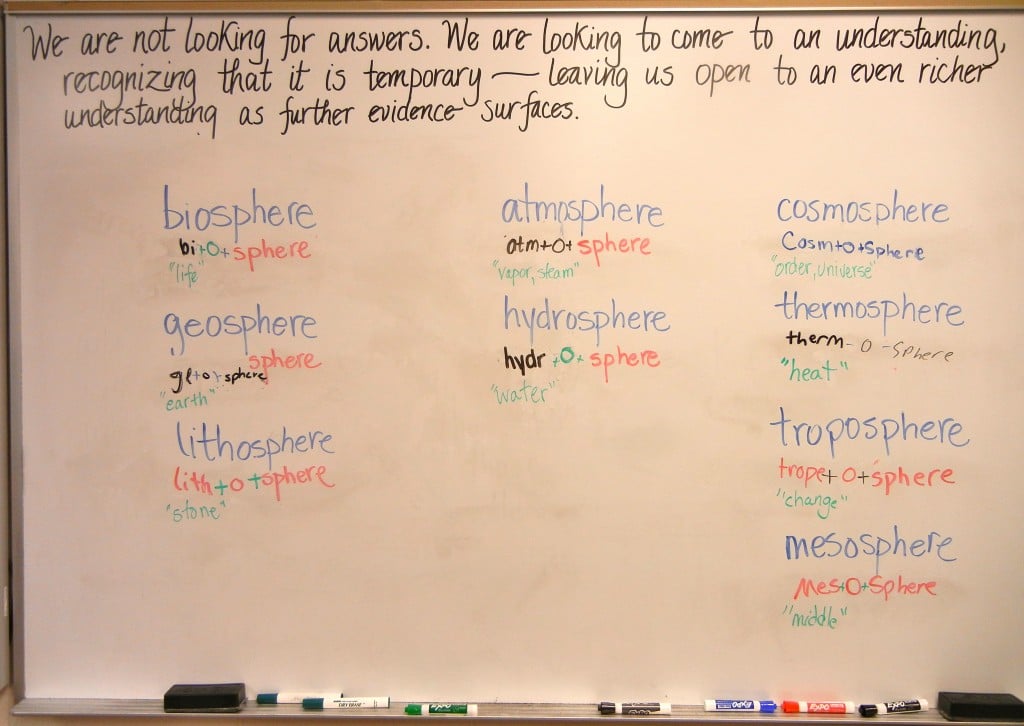 We are not looking for answers. We are looking to come to an understanding,
recognizing that it is temporary — leaving us open to an even richer
understanding as further evidence surfaces.
biosphere
bi+o+sphere
"life"
geosphere
sphere
ge+o+sphere
"earth"
lithosphere
lith+o+sphere
"stone"
atmosphere
atm+o+sphere
"vapor, steam"
hydrosphere
hydr+o+sphere
"water"
cosmosphere
Cosm+o+sphere
"order, universe"
thermosphere
therm-o-sphere
"heat"
troposphere
trope+o+sphere
"change"
mesosphere
Mes+O+Sphere
"middle"
DRY ERASE
EXPO
EXPO
EXPO
EXPO
EXPO